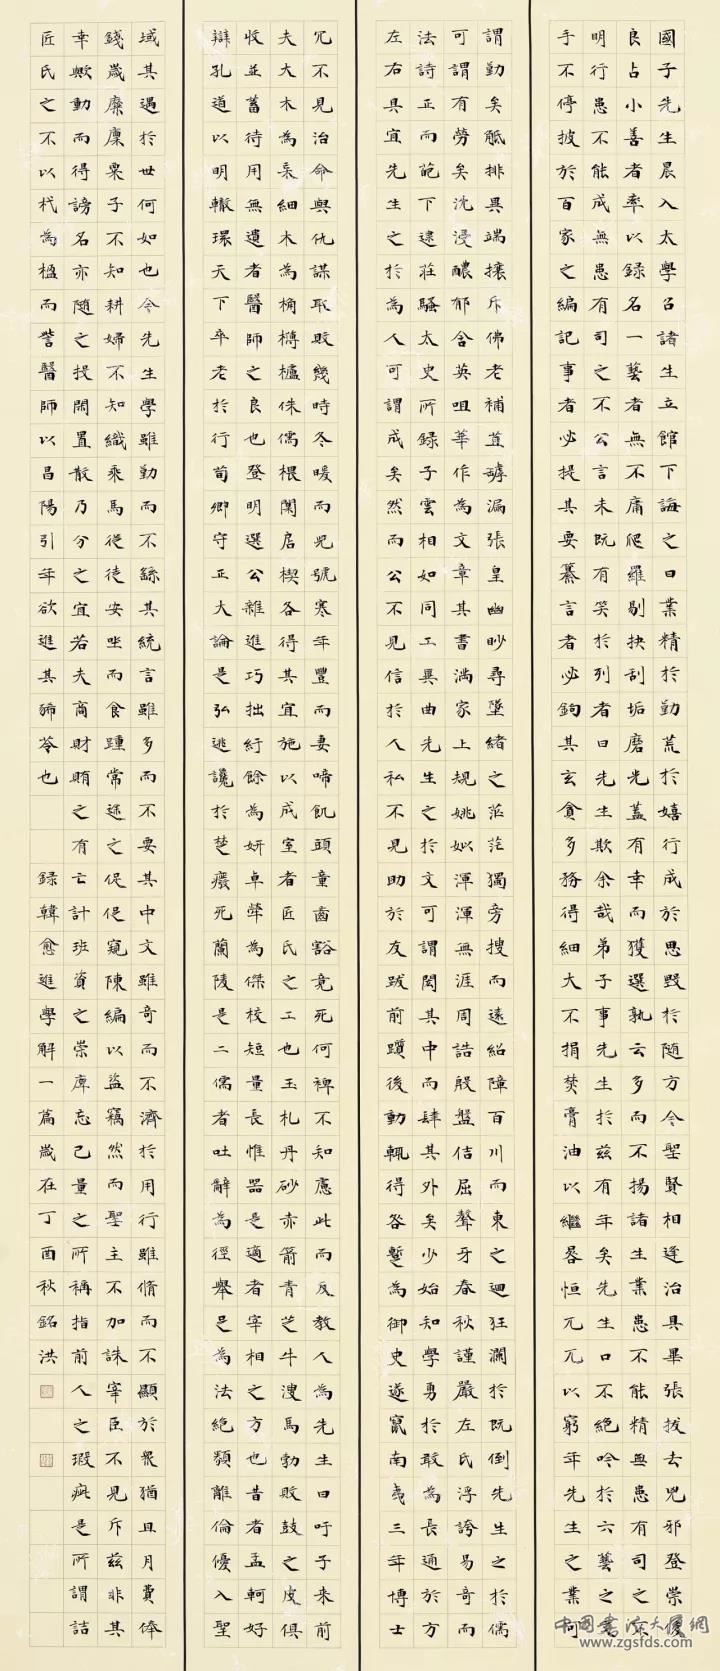 國子先生晨入太學召諸生立館下誨之曰業精於勤荒於嬉行成於思毀於隨方今聖賢相逢治具畢張拔去兇邪登崇俊
良占小善者率以録名一藝者無不庸爬羅剔抉刮垢磨光蓋有幸而獲選孰云多而不揚諸生業患不能精無患有司之不
明行患不能成無患有司之不公言未既有笑於列者曰先生欺余哉弟子事先生於茲有年矣先生口不絕吟於六藝之文
手不停披於百家之編記事者必提其要纂言者必鉤其玄貪多務得細大不捐焚膏油以繼晷恒兀兀以窮年先生之業可
謂勤矣觝排異端攘斥佛老補苴罅漏張皇幽眇尋墜緒之茫茫獨旁搜而遠紹障百川而東之迴狂瀾於既倒先生之於儒
可謂有勞矣沈浸醲郁含英咀華作為文章其書滿家上規姚姒渾渾無涯周誥殷盤佶屈聱牙春秋謹嚴左氏浮誇易奇而
法詩正而葩下逮莊騷太史所録子雲相如同工異曲先生之於文可謂閎其中而肆其外矣少始知學勇於敢為長通於方
左右具宜先生之於為人可謂成矣然而公不見信於人私不見助於友跋前躓後動輒得咎暫為御史遂竄南夷三年博士
冗不見治命與仇謀取敗幾時冬暖而兒號寒年豐而妻啼飢頭童齒豁竟死何裨不知慮此而反教人為先生曰吁子來前
夫大木為杗細木為桷欂櫨侏儒椳闑扂楔各得其宜施以成室者匠氏之工也玉札丹砂赤箭青芝牛溲馬勃敗鼓之皮俱
收並蓄待用無遺者醫師之良也登明選公雜進巧拙紆餘為妍卓犖為傑校短量長惟器是適者宰相之方也昔者孟軻好
辯孔道以明轍環天下卒老於行荀卿守正大論是弘逃讒於楚廢死蘭陵是二儒者吐辭為經舉足為法絕類離倫優入聖
域其遇於世何如也今先生學雖勤而不繇其統言雖多而不要其中文雖奇而不濟於用行雖脩而不顯於衆猶且月費俸
錢歲靡廩粟子不知耕婦不知織乘馬從徒安坐而食踵常途之促促窺陳編以盜竊然而聖主不加誅宰臣不見斥茲非其
幸歟動而得謗名亦隨之投閒置散乃分之宜若夫商財賄之有亡計班資之崇庳忘己量之所稱指前人之瑕疵是所謂詰
匠氏之不以杙為楹而訾醫師以昌陽引年欲進其豨苓也 録韓愈進學解一篇歲在丁酉秋銘洪
中國書法大厦網
www.zgsfds.com